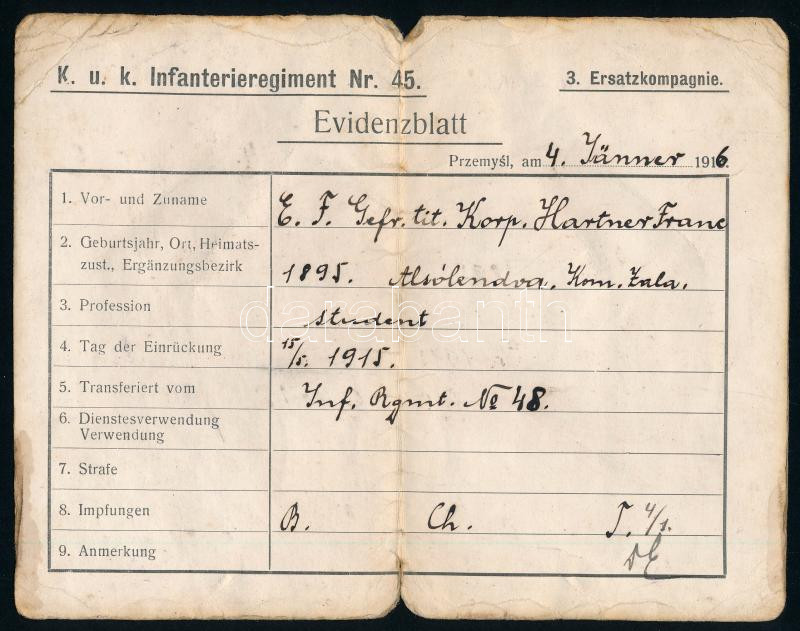 K. u. k. Infanterieregiment Nr. 45.
3. Ersatzkompagnie.
Evidenzblatt
Przemyśl, am 4. Jänner 1916.
1. Vor- und Zuname
E. F. Gefr. tit. Korp. Hartner Franc
2. Geburtsjahr, Ort, Heimats-
zust., Ergänzungsbezirk
1895. Alsólendva. Kom. Zala.
3. Profession
student
4. Tag der Einrückung
15/5. 1915.
5. Transferiert vom
Inf. Rgmt. No 48.
6. Dienstesverwendung
Verwendung
7. Strafe
8. Impfungen
B. Ch. T. 4/1.
9. Anmerkung
darabanth